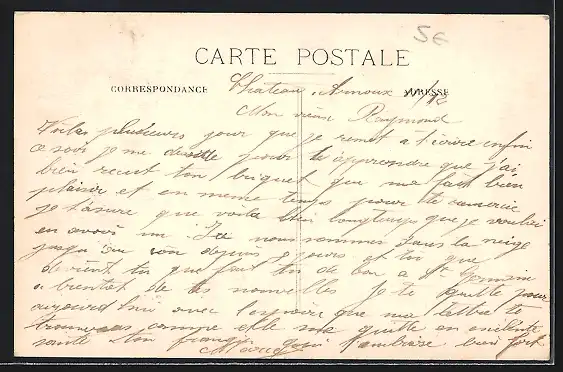 5€
CARTE POSTALE
CORRESPONDANCE
ADRESSE
Chateau Arnoux /12
Mon vieux Raymond
Voila plusieurs jour que je remet a t'ecrire enfin
ce soir je me decide pour t'apprendre que j'ai
bien recut ton briquet qui ma fait bien
plaisir et en meme temps pour te
je t'asure que voila bien longtemps que je voulai
en avoir un Ici nous sommes dans la neige
jusqu'au depuis 8 jours et toi que
devient tu que fait tu de bon a St
a bientot de tes nouvelles Je te quitte pour
aujourd'hui avec l'espoire que ma lettre te
trouveras comme elle me quitte en exelente
sante Ton frangin qui t'embrasse bien fort